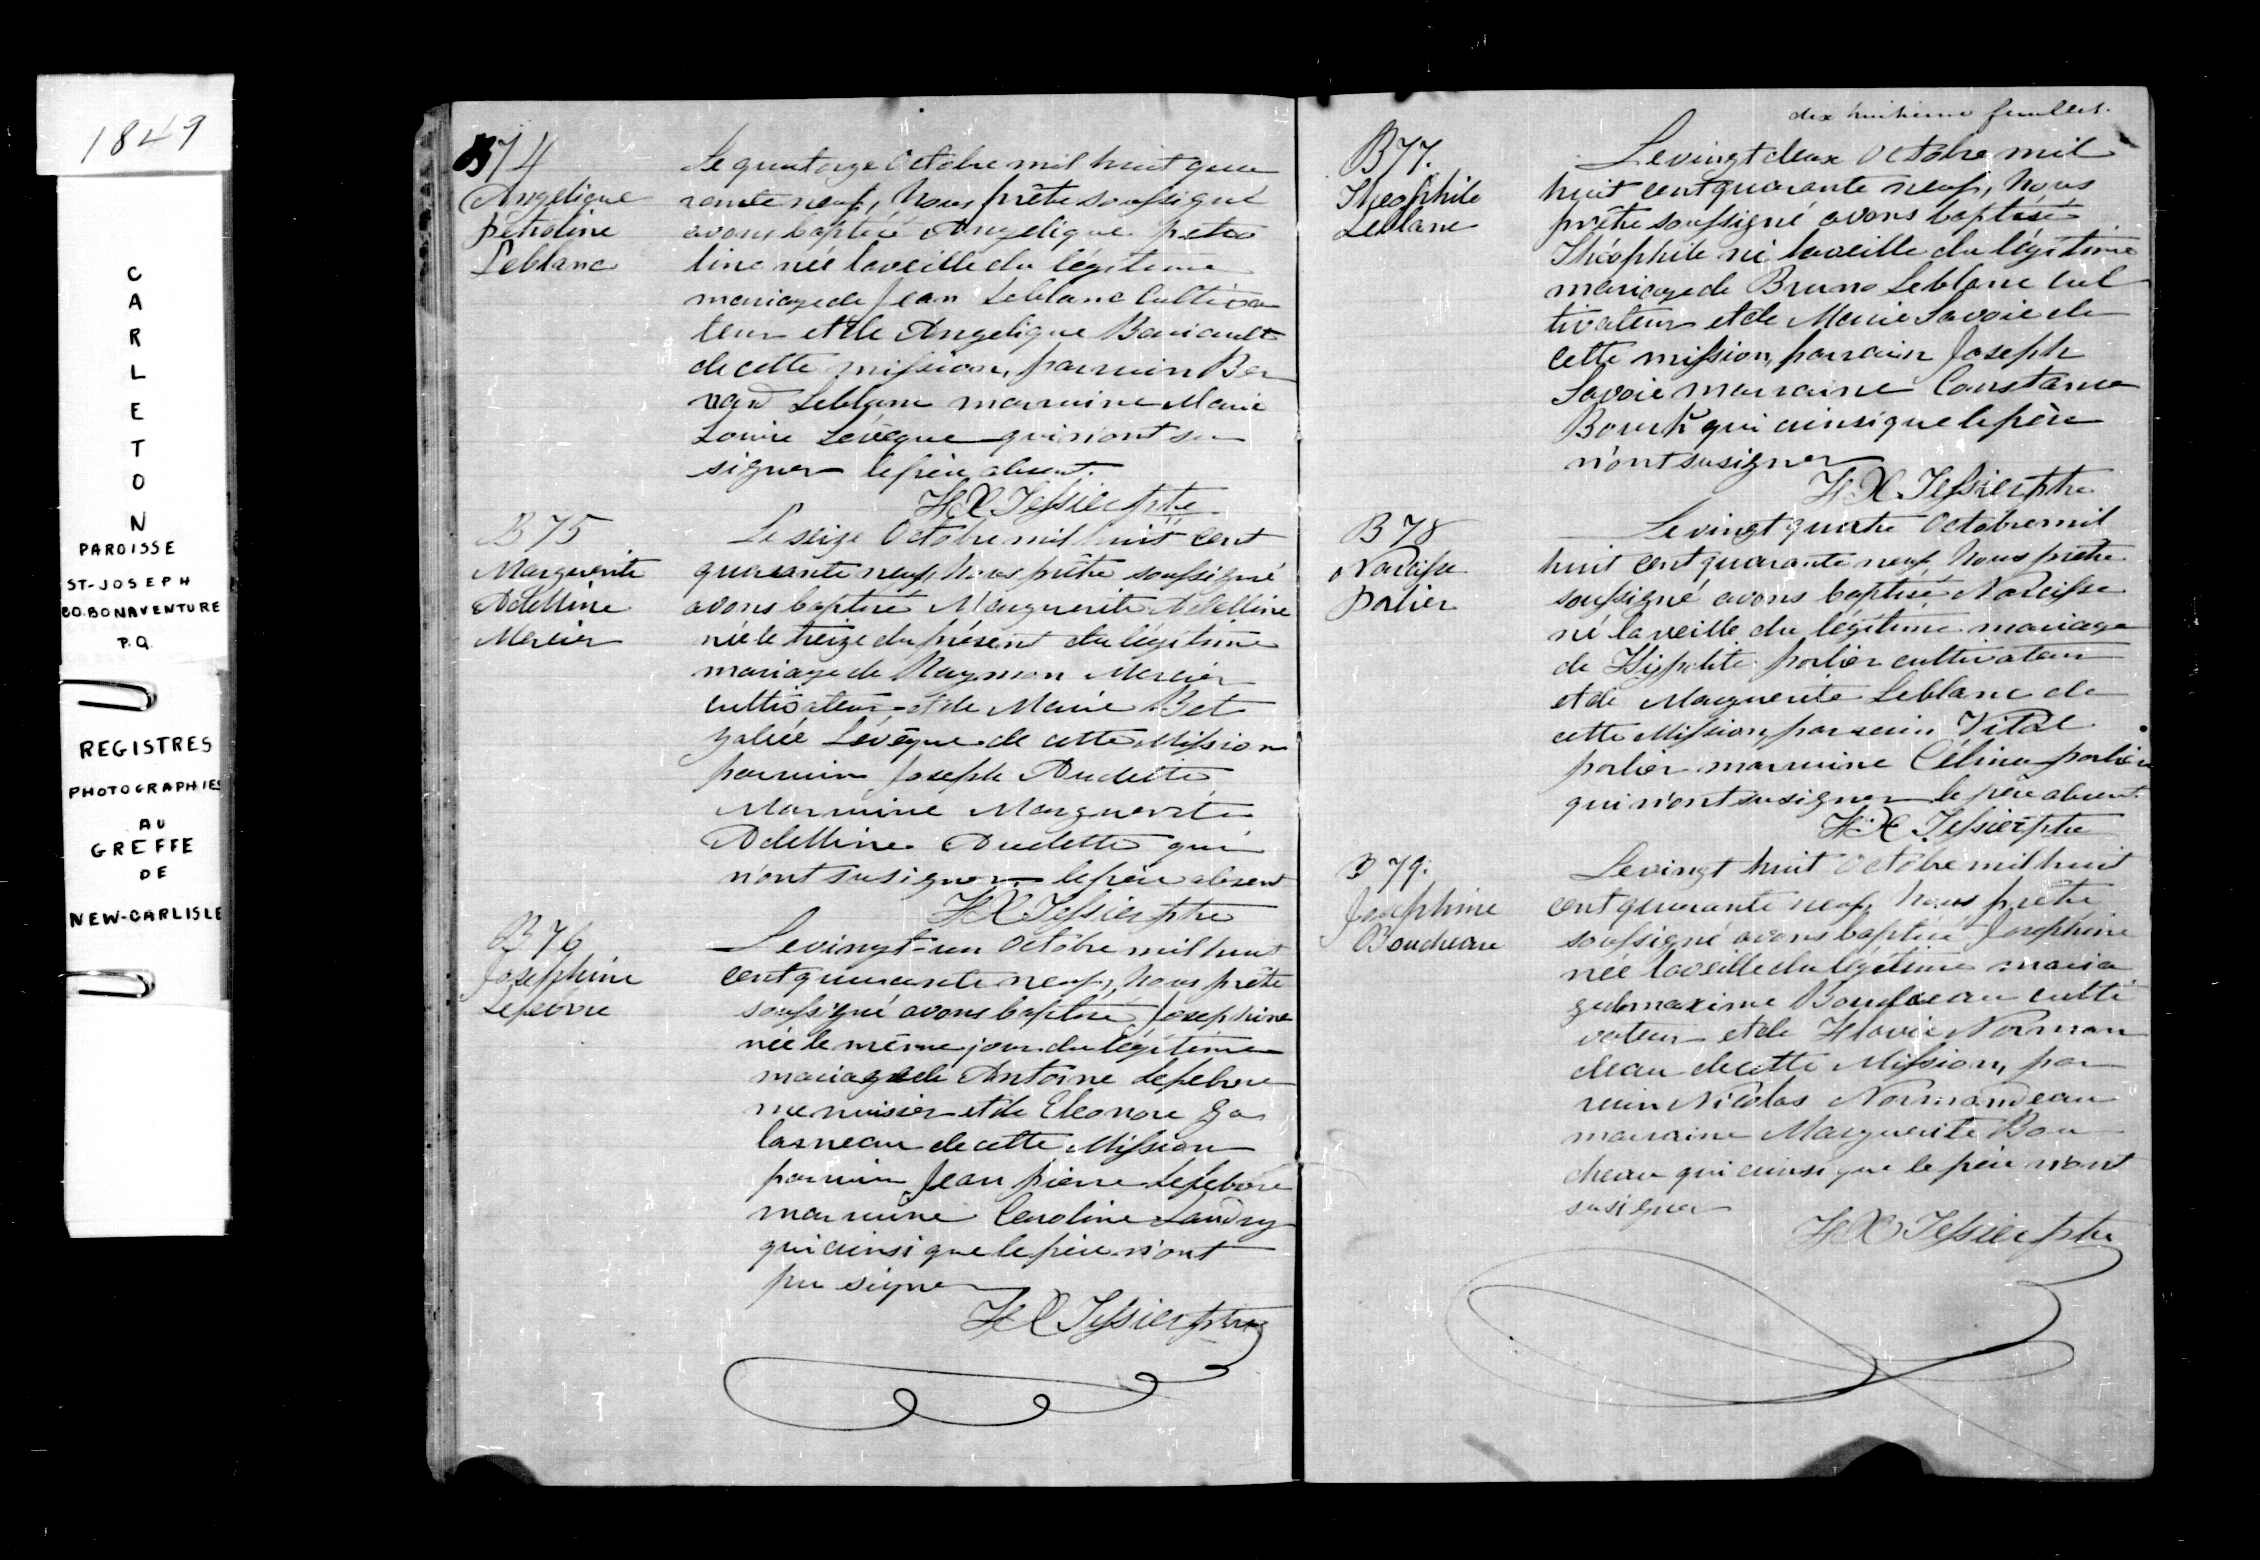 1849
C
A
R
L
E
T
O
N
PAROISSE
ST-JOSEPH
CO. BONAVENTURE
P.Q.
REGISTRES
PHOTOGRAPHIES
AU
GREFFE
DE
NEW-CARLISLE
B74
Angelique
Petroline
Leblanc
Le quatorze Octobre mil huit qua
rante neuf, Nous prêtre soussigné
avons baptisé Angelique petro
line née la veille du légitime
mariage de Jean Leblanc Cultiva
teur et de Angelique
de cette mission, parrain Ber
nard Leblanc marraine Marie
Louise Lévêque qui n'ont su
signer le père absent.
H X Tessier ptre
B 75
Marguerite
Adelline
Mercier
Le seize Octobre mil huit cent
quarante neuf, Nous prêtre soussigné
avons baptisé Marguerite Adelline
née le treize du présent du légitime
mariage de Raymon Mercier
cultivateur et de Marie Bet
zabée Lévêque de cette Mission
parrain Joseph Audette
Marraine Marguerite
Adelline Audette qui
n'ont su signer le père absent
H X Tessier ptre
B 76
Josephine
Lefebvre
Le vingt-un Octobre mil huit
cent quarante neuf, Nous prêtre
soussigné avons baptisé Josephine
née le même jour du légitime
mariage de Antoine Lefebvre
menuisier et de Eleonore Ga
lasneau de cette Mission
parrain Jean pierre Lefebvre
marraine Caroline Landry
qui ainsi que le père n'ont
pu signer
H X Tessier ptre
dix huitieme feuillet.
B77.
Theophile
Leblanc
Le vingt deux Octobre mil
huit cent quarante neuf, Nous
prêtre soussigné avons baptisé
Théophile né la veille du légitime
mariage de Bruno Leblanc cul
tivateur et de Marie Savoie de
cette mission, parrain Joseph
Savoie marraine Constance
Bourk qui ainsi que le père
n'ont su signer
H X. Tessier ptre
B 78
Narcisse
Porlier
Le vingt quatre Octobre mil
huit cent quarante neuf, Nous prêtre
soussigné avons baptisé Narcisse
né la veille du légitime mariage
de Hippolite porlier cultivateur
et de Marguerite Leblanc de
cette Mission, parrain Vital
porlier marraine Célina porlier
qui n'ont su signer le père absent.
H X Tessier ptre
B 79.
Josephine
Boudreau
Le vingt huit Octobre mil huit
cent quarante neuf, Nous prêtre
soussigné avons baptisé Josephine
née la veille du légitime maria
ge de maxime Boudreau culti
vateur et de Flavie Norman
deau de cette Mission, par
rain Nicolas Normandeau
marraine Marguerite Bou
dreau qui ainsi que le père n'ont
su signer
H X Tessier ptre